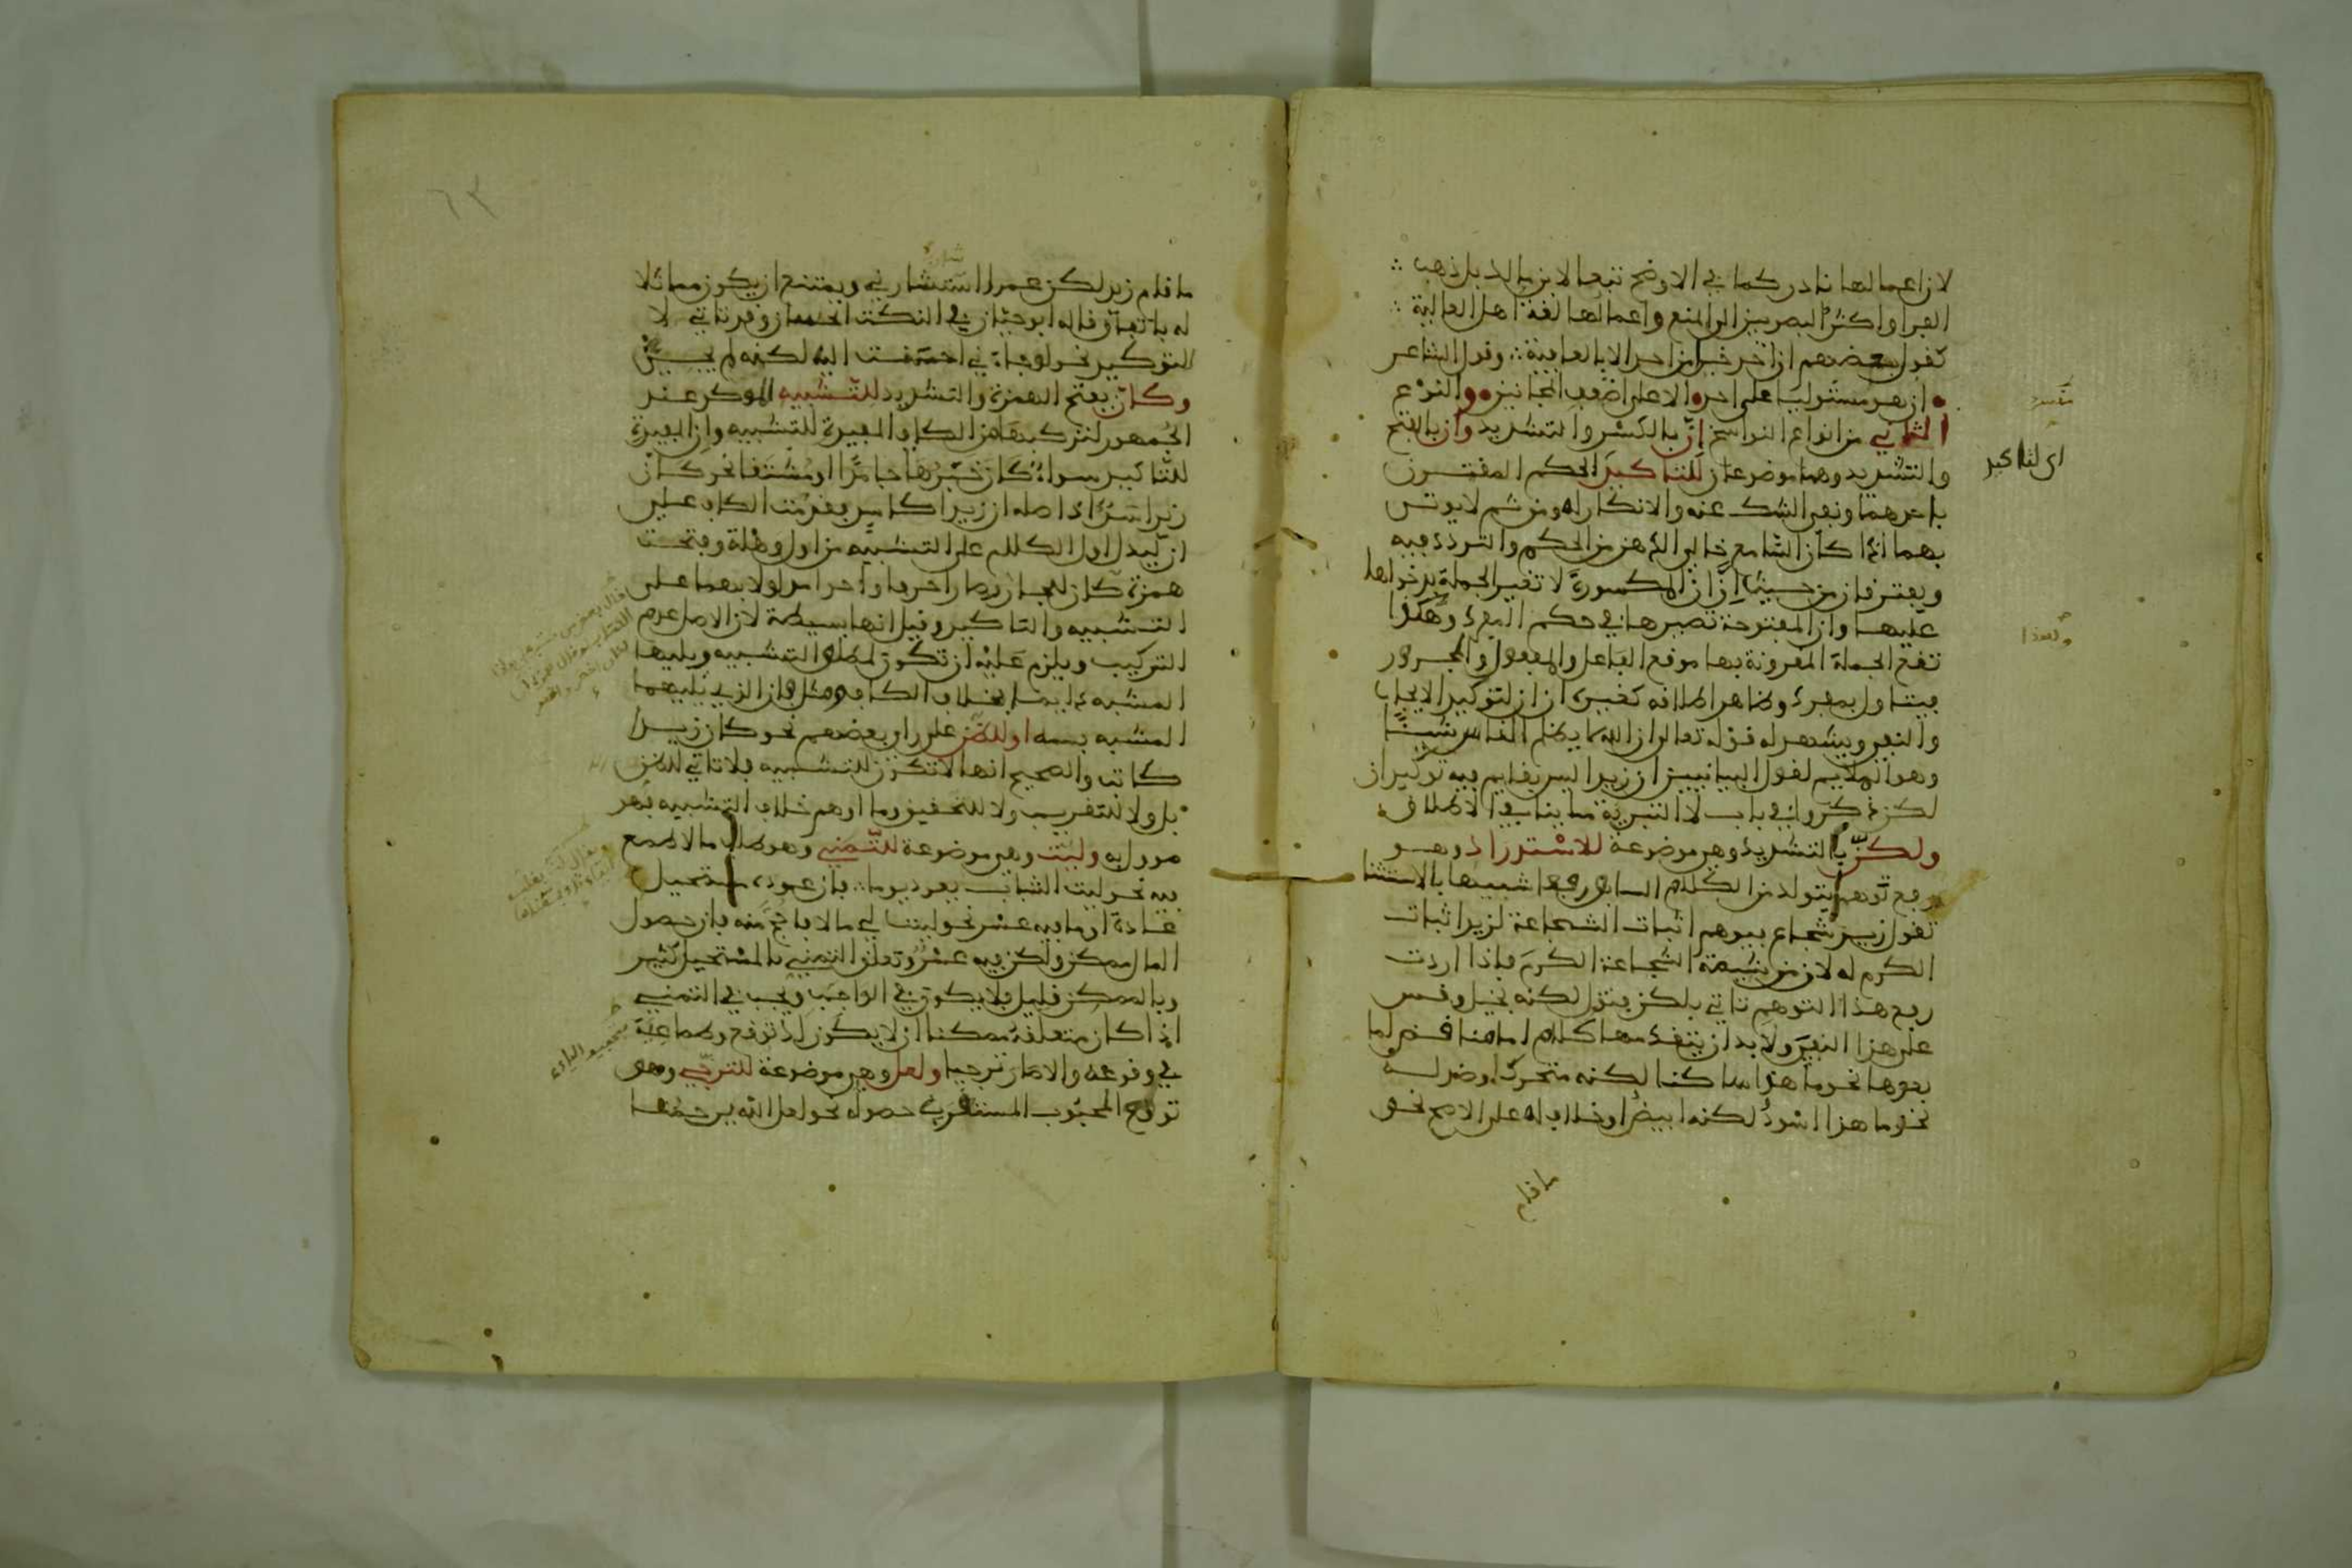 لان اعمالها نادر كما في الاوضح تبعا لابن مالك بل ذهب
الفرا واكثر البصريين الى المنع واعمالها لغة اهل العالية
كقول بعضهم ان احد خيرا من احد الا بالعافية وقول الشاعر
ان هو مستوليا على احد الا على اضعف المجانين والنوع
الثاني من انواع النواسخ إنّ بالكسر والتشديد وأن بالفتح
والتشديد وهما موضوعان للتاكيد الحكم المقترن
باحدهما ونفي الشك عنه والانكار له ومن ثم لا يوتى
بهما اذا كان السامع خالي الذهن من الحكم والتردد فيه
ويفترقان من حيث ان إن المكسورة لا تغير الجملة بدخولها
عليها وأن المفتوحة تصيرها في حكم المفرد وهكذا
تقع الجملة المقرونة بها موقع الفاعل والمفعول والمجرور
فيتاول بمفرد وظاهر اطلاقه كغيره ان ان لتوكيد الايجاب
والنفي ويشهد له قوله تعالى ان الله لا يظلم الناس شيئا
وهو الملايم لقول البيانيين ان زيدا ليس بقايم فيه توكيدان
لكن ذكروا في باب لا التبرية ما ينافي الاطلاق
ولكنّ بالتشديد وهي موضوعة للاستدراك وهو
رفع توهم يتولد من الكلام السابق رفعا شبيها بالاستثنا
تقول زيد شجاع فيوهم اثبات الشجاعة لزيد اثبات
الكرم له لان من شيمة الشجاعة الكرم فاذا اردت
رفع هذا التوهم تاتي بلكن فتقول لكنه بخيل وقس
على هذا النفي ولا بد ان يتقدمها كلام اما مناقض لما
بعدها نحو ما هذا ساكنا لكنه متحرك او ضد له
نحو ما هذا اسود لكنه ابيض او خلاف له على الاصح نحو
ما قام
اي لتاكيد
ولهذا
ما قام زيد لكن عمرا استشارني ويمتنع ان يكون مماثلا
له باتفاق قاله ابو حيان في النكت الحسان وقد تاتي لا
للتوكيد نحو لو جاءني احسنت اليه لكنه لم يجئ
وكأنّ بفتح الهمزة والتشديد للتشبيه الموكد عند
الجمهور لتركبها من الكاف المفيدة للتشبيه وان المفيدة
للتاكيد سواء كان خبرها جامدا او مشتقا نحو كان
زيدا اسد اذ اصله ان زيدا كاسد فقدمت الكاف على
ان ليدل اول الكلام على التشبيه من اول وهلة وفتحت
همزة كان للجار وصارا حرفا واحدا مدلولا بهما على
التشبيه والتاكيد وقيل انها بسيطة لان الاصل عدم
التركيب ويلزم عليه ان تكون لمطلق التشبيه ويليها
المشبه دايما بخلاف الكاف ومثل فان الذي يليهما
المشبه به او للظن على راي بعضهم نحو كان زيدا
كاتب والصحيح انها لا تكون للتشبيه فلا تاتي للظن
بل ولا للتقريب ولا للتحقيق وما اوهم خلاف التشبيه فهو
موول به وليت وهي موضوعة للتمني وهو طلب ما لا طمع
فيه نحو ليت الشباب يعود يوما فان عوده مستحيل
عادة او ما فيه عسر نحو ليت لي مالا فاحج منه فان حصول
المال ممكن ولكن فيه عسر وتعلق التمني بالمستحيل كثير
وبالممكن قليل فلا يكون في الواجب ويجب في التمني
اذا كان متعلقه ممكنا ان لا يكون لك توقع وطماعية
في وقوعه والا صار ترجيا ولعل وهي موضوعة للترجي وهو
توقع المحبوب المستقرب حصوله نحو لعل الله يرحمنا